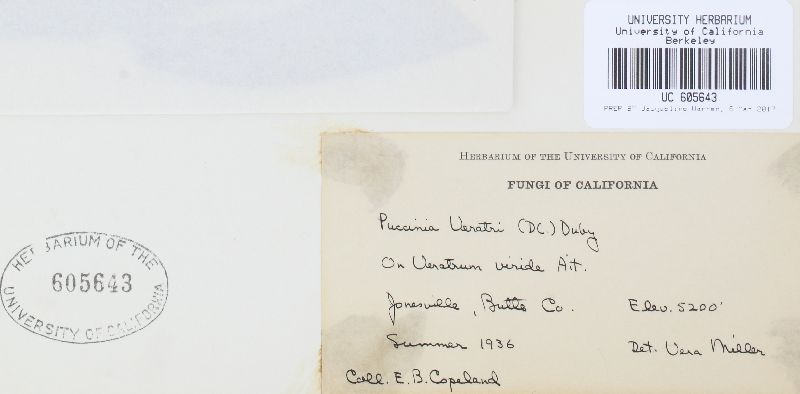 UNIVERSITY HERBARIUM
University of California
Berkeley
UC 605643
PREP BY Jacqueline Warren, 6 Mar 2017
HERBARIUM OF THE
605643
UNIVERSITY OF CALIFORNIA
HERBARIUM OF THE UNIVERSITY OF CALIFORNIA
FUNGI OF CALIFORNIA
Puccinia Veratri (DC.) Duby
On Veratrum viride Ait.
Jonesville, Butte Co. Elev. 5200'
Summer 1936 Det. Vera Miller
Coll. E. B. Copeland